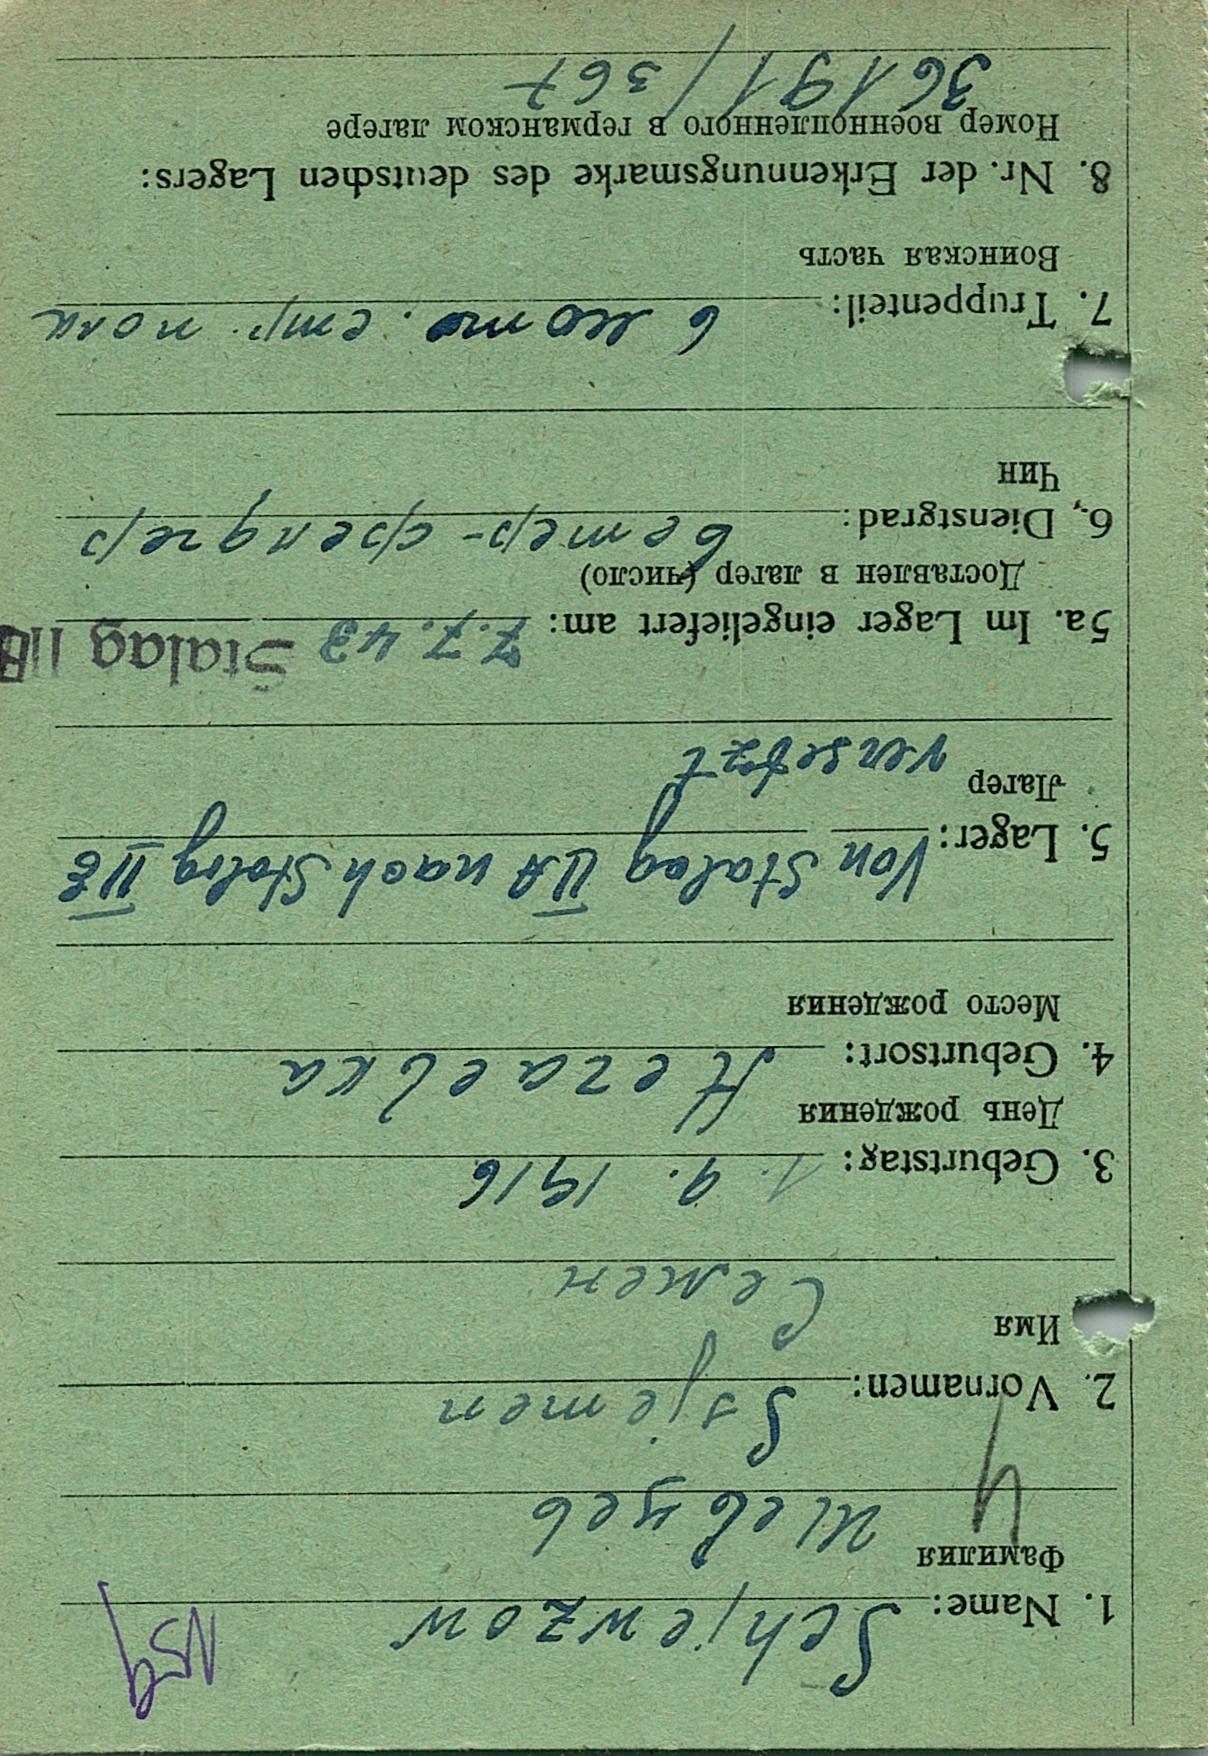 NSq
1. Name: Schjewzow
Фамилия
Шевцев
2. Vornamen: Ssjemen
Имя
Семен
3. Geburtstag: 1. 9. 1916
День рождения
4. Geburtsort: Негаевка
Место рождения
5. Lager: Von Stalag II A nach Stalag II E
Лагер versetzt
5a. Im Lager eingeliefert am: 7. 7. 43 Stalag II
Доставлен в лагер (число)
6. Dienstgrad: ветер-фелдгер
Чин
7. Truppenteil: 6 мото. стр. полк
Воинская часть
8. Nr. der Erkennungsmarke des deutschen Lagers:
Номер военнопленного в германском лагере
36191/367